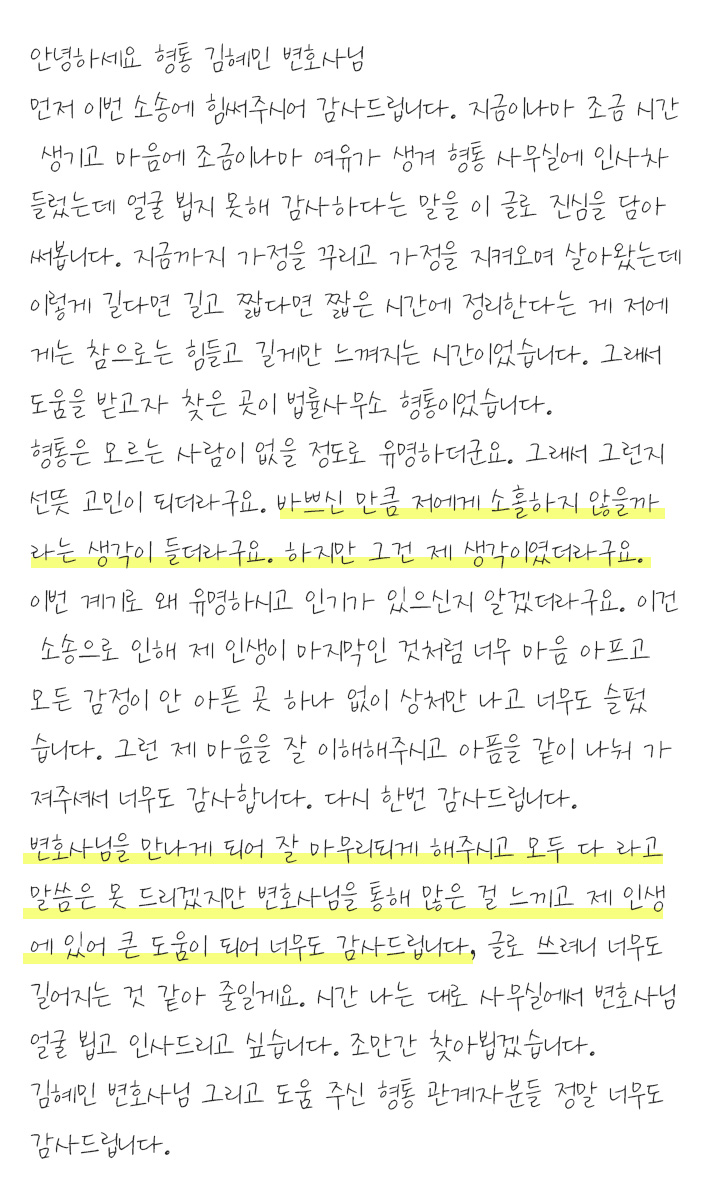 안녕하세요 형통 김혜민 변호사님
먼저 이번 소송에 힘써주시어 감사드립니다. 지금이나마 조금 시간
생기고 마음에 조금이나마 여유가 생겨 형통 사무실에 인사차
들렀는데 얼굴 뵙지 못해 감사하다는 말을 이 글로 진심을 담아
써봅니다. 지금까지 가정을 꾸리고 가정을 지켜오며 살아왔는데
이렇게 길다면 길고 짧다면 짧은 시간에 정리한다는 게 저에
게는 참으로는 힘들고 길게만 느껴지는 시간이었습니다. 그래서
도움을 받고자 찾은 곳이 법률사무소 형통이었습니다.
형통은 모르는 사람이 없을 정도로 유명하더군요. 그래서 그런지
선뜻 고민이 되더라구요. 바쁘신 만큼 저에게 소홀하지 않을까
라는 생각이 들더라구요. 하지만 그건 제 생각이였더라구요.
이번 계기로 왜 유명하시고 인기가 있으신지 알겠더라구요. 이건
소송으로 인해 제 인생이 마지막인 것처럼 너무 마음 아프고
모든 감정이 안 아픈 곳 하나 없이 상처만 나고 너무도 슬펐
습니다. 그런 제 마음을 잘 이해해주시고 아픔을 같이 나눠 가
져주셔서 너무도 감사합니다. 다시 한번 감사드립니다.
변호사님을 만나게 되어 잘 마무리되게 해주시고 모두 다 라고
말씀은 못 드리겠지만 변호사님을 통해 많은 걸 느끼고 제 인생
에 있어 큰 도움이 되어 너무도 감사드립니다, 글로 쓰려니 너무도
길어지는 것 같아 줄일게요. 시간 나는 대로 사무실에서 변호사님
얼굴 뵙고 인사드리고 싶습니다. 조만간 찾아뵙겠습니다.
김혜민 변호사님 그리고 도움 주신 형통 관계자분들 정말 너무도
감사드립니다.